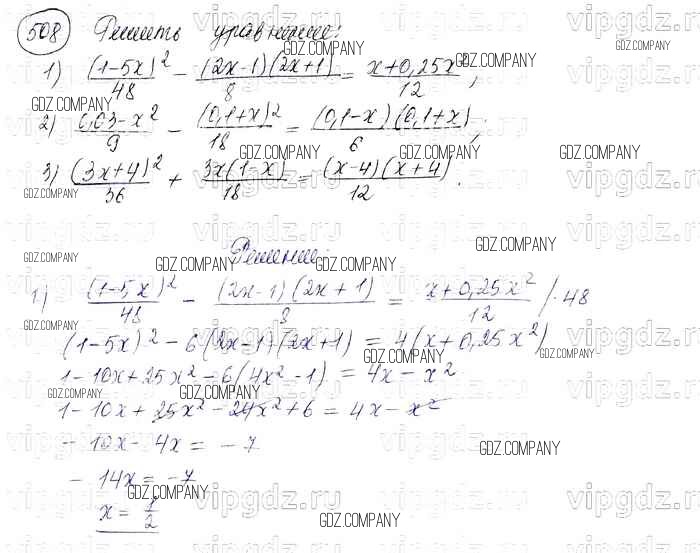 508 Решить уравнение:
1) (1-5x)²/48 - (2x-1)(2x+1)/8 = x+0,25x²/12;
2) 0,03-x²/9 - (0,1+x)²/18 = (0,1-x)(0,1+x)/6;
3) (3x+4)²/36 + 3x(1-x)/18 = (x-4)(x+4)/12.
Решение:
1) (1-5x)²/48 - (2x-1)(2x+1)/8 = x+0,25x²/12 /·48
(1-5x)² - 6(2x-1)(2x+1) = 4(x+0,25x²)
1-10x+25x²-6(4x²-1) = 4x-x²
1-10x+25x²-24x²+6 = 4x-x²
-10x-4x = -7
-14x = -7
x = 1/2
GDZ.COMPANY
vipgdz.ru